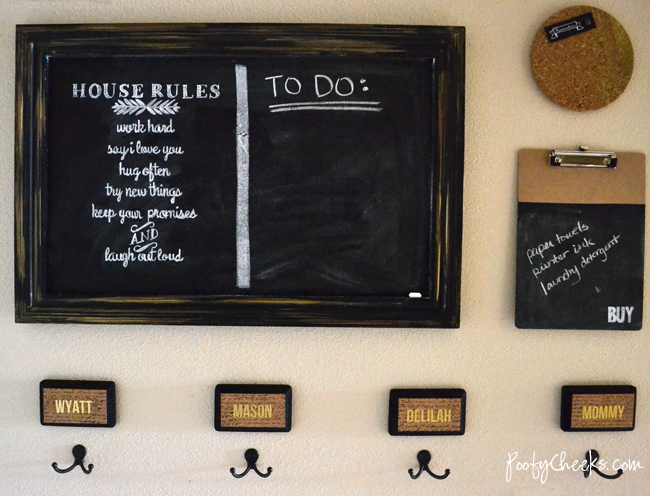 HOUSE RULES
work hard
say i love you
hug often
try new things
keep your promises
AND
laugh out loud
TO DO:
paper towels
printer ink
laundry detergent
BUY
WYATT
MASON
DELILAH
MOMMY
PootyCheeks.com